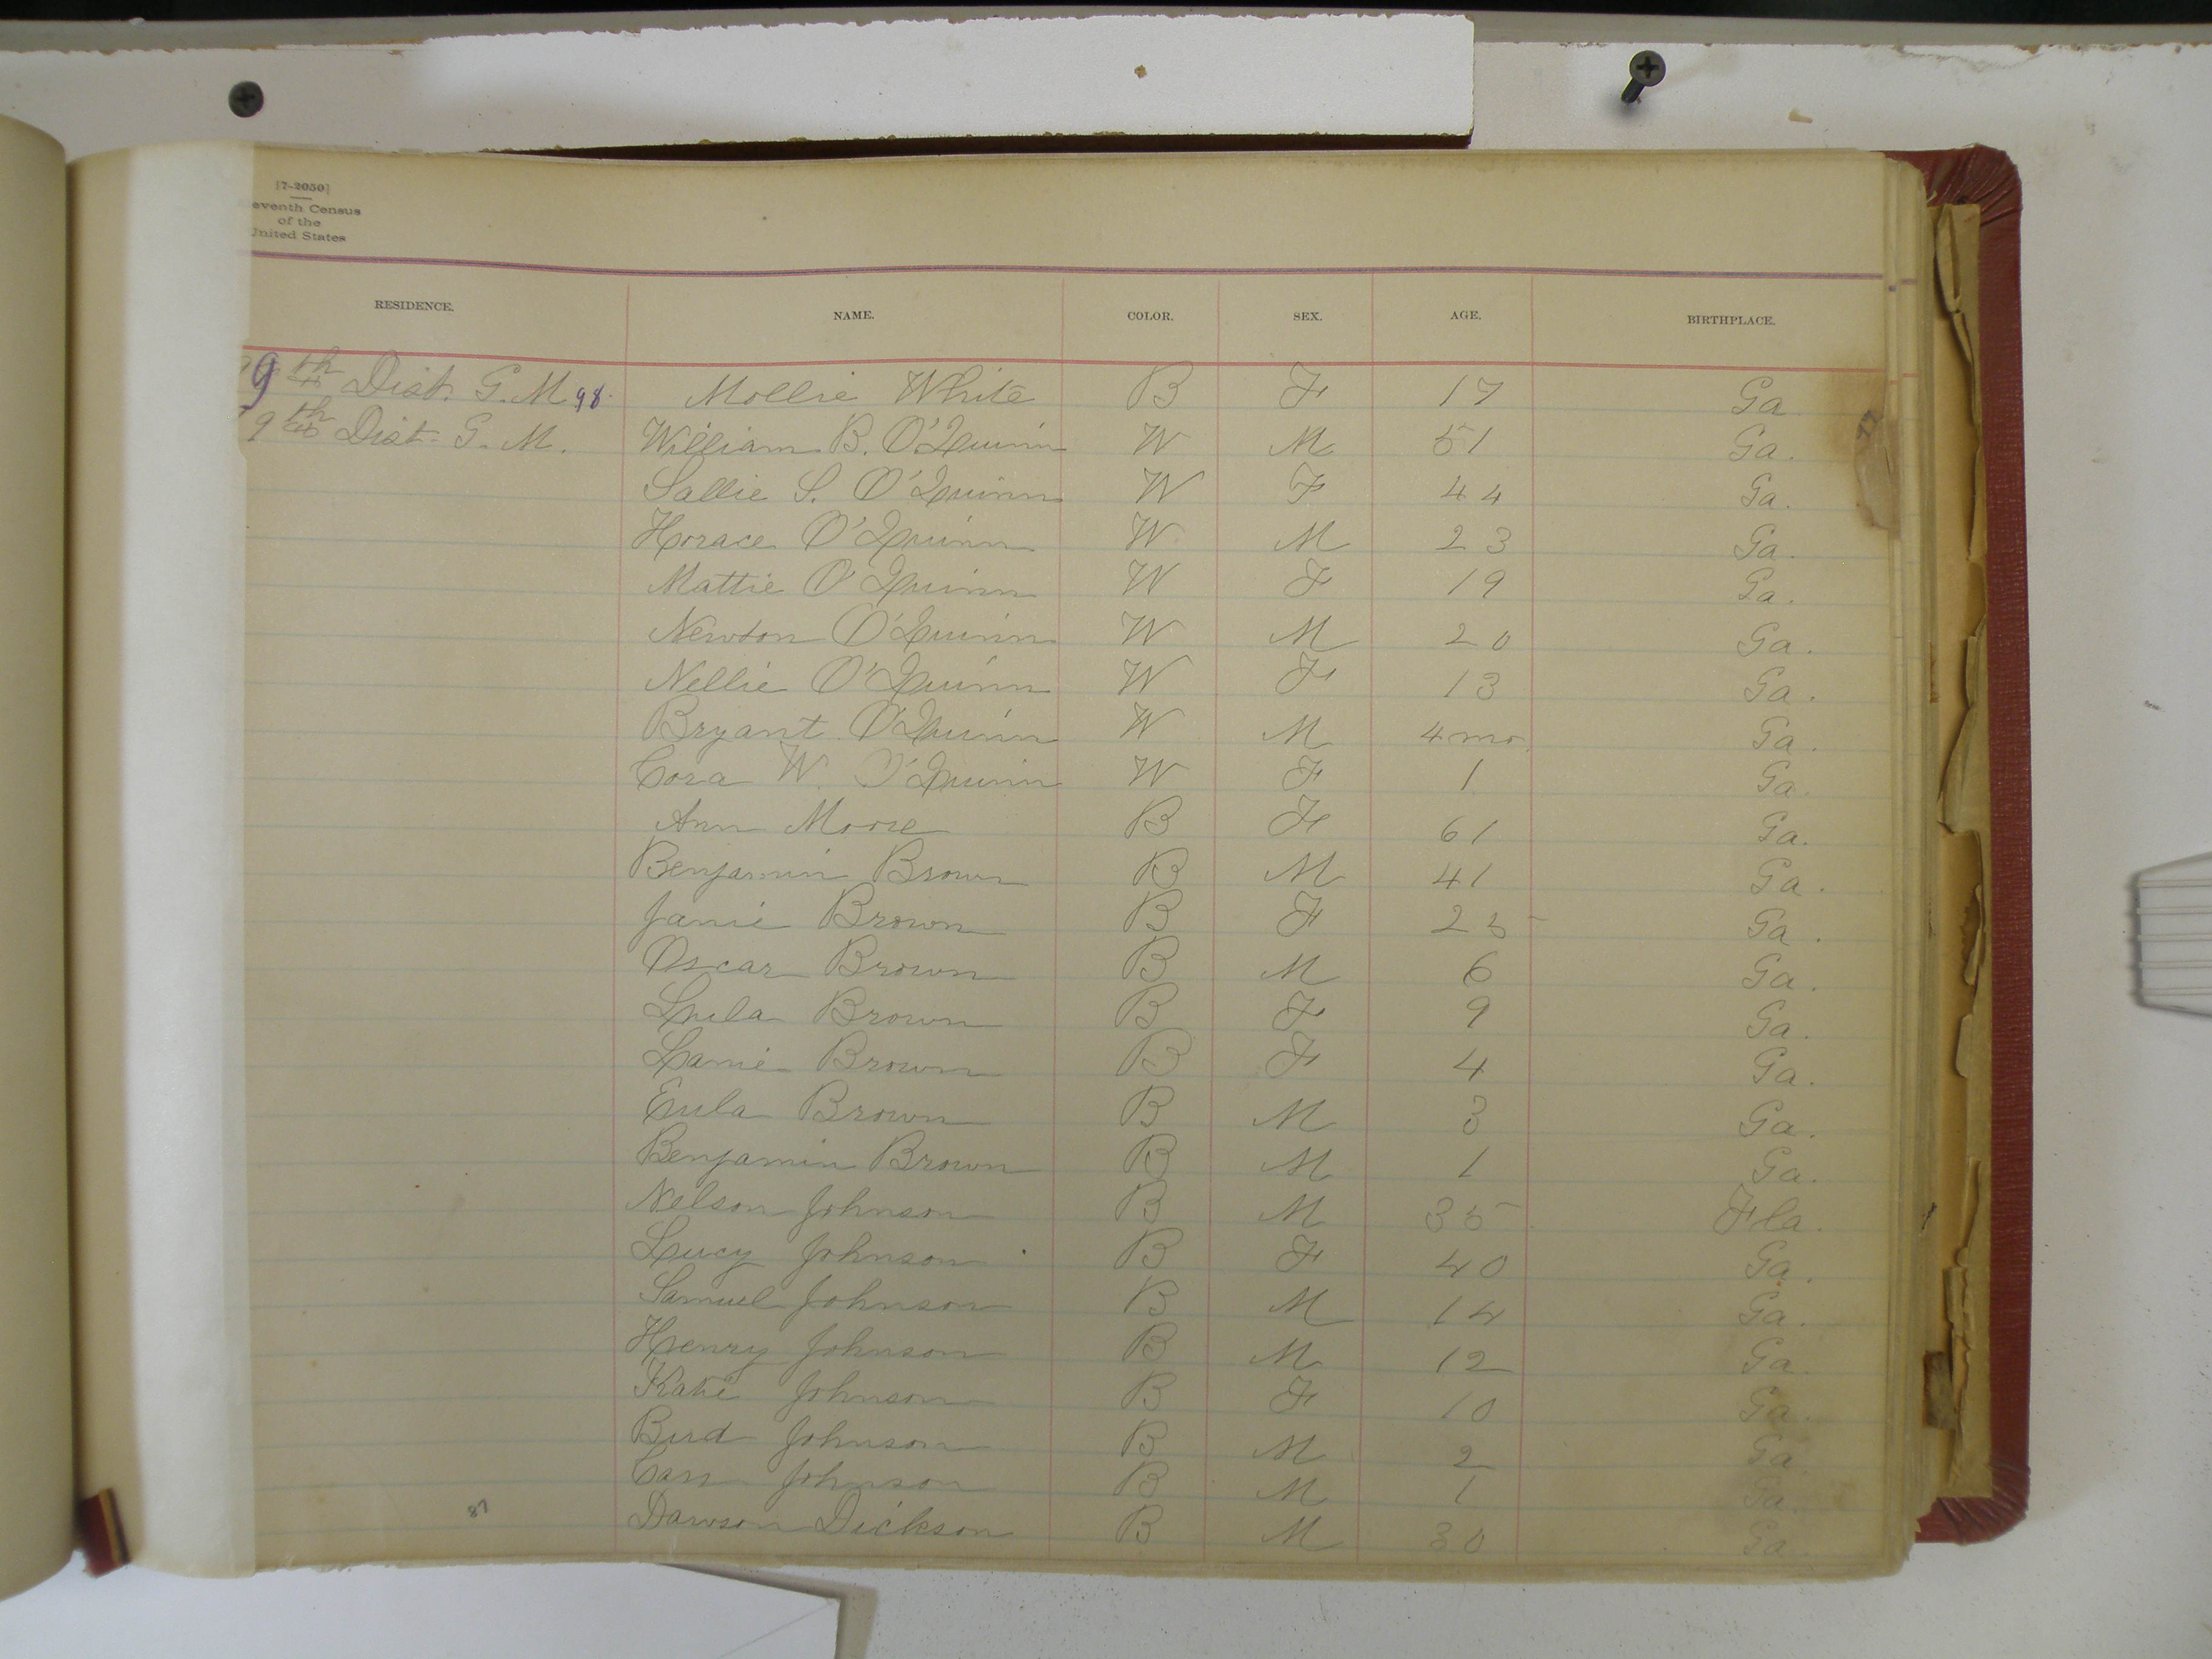 [7-2050]
eventh Census
of the
United States
RESIDENCE. NAME. COLOR. SEX. AGE. BIRTHPLACE.
9th Dist. G. M. 98. Mollie White B F 17 Ga.
9th Dist. G. M. William B. O'Quinn W M 51 Ga.
Sallie S. O'Quinn W F 44 Ga.
Horace O'Quinn W M 23 Ga.
Mattie O'Quinn W F 19 Ga.
Newton O'Quinn W M 20 Ga.
Nellie O'Quinn W F 13 Ga.
Bryant O'Quinn W M 4 mo. Ga.
Cora W. O'Quinn W F 1 Ga.
Ann Moore B F 61 Ga.
Benjamin Brown B M 41 Ga.
Janie Brown B F 25 Ga.
Oscar Brown B M 6 Ga.
Lula Brown B F 9 Ga.
Lanie Brown B F 4 Ga.
Eula Brown B M 3 Ga.
Benjamin Brown B M 1 Ga.
Nelson Johnson B M 35 Fla.
Lucy Johnson B F 40 Ga.
Samuel Johnson B M 14 Ga.
Henry Johnson B M 12 Ga.
Katie Johnson B F 10 Ga.
Bird Johnson B M 2 Ga.
Johnson B M 1 Ga.
Dawson Dickson B M 30 Ga.
87